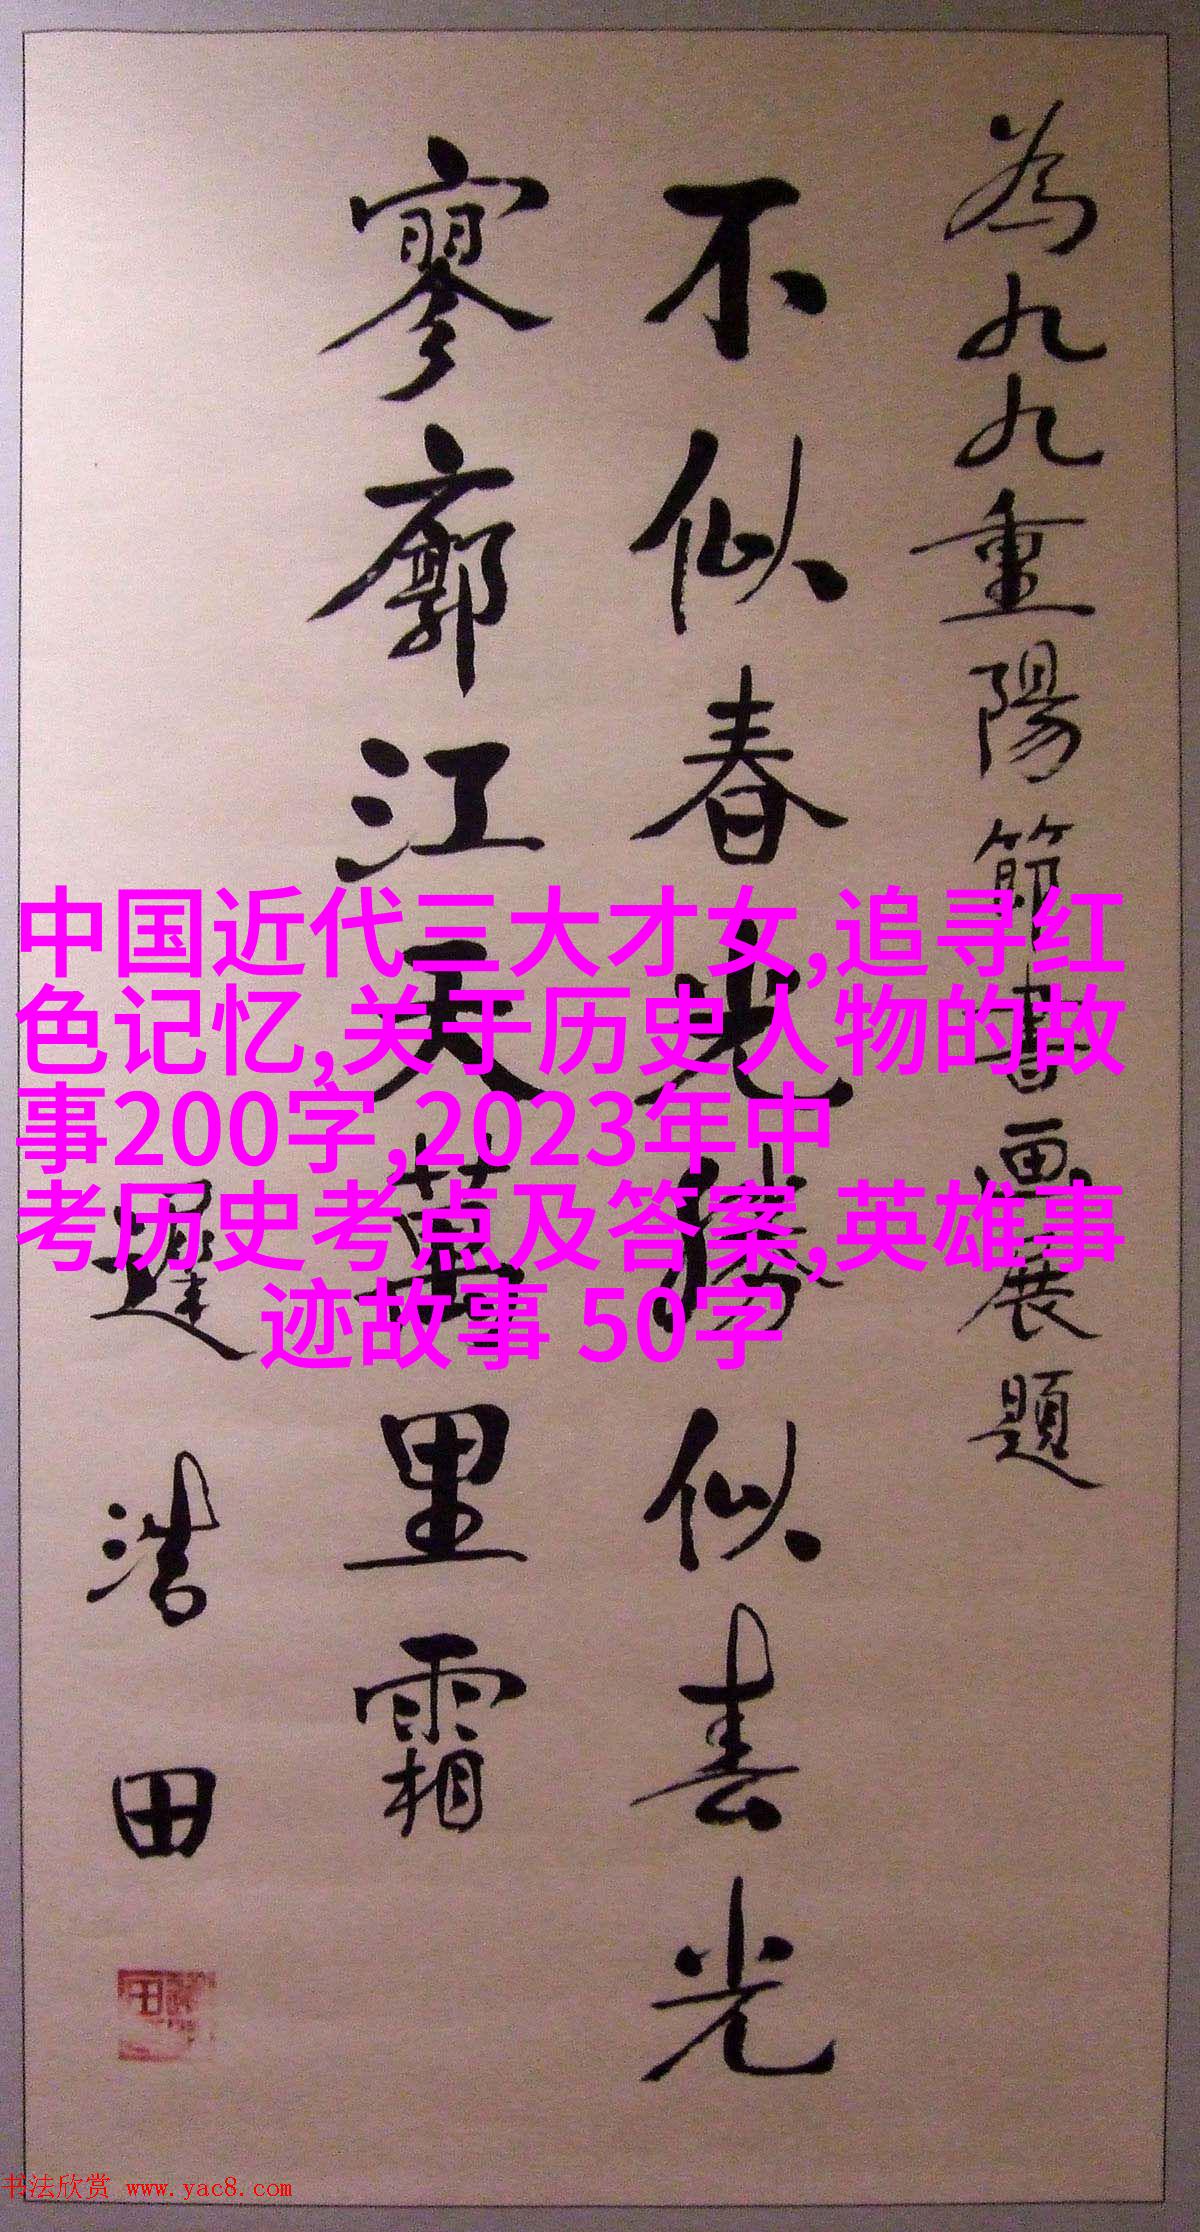 為九九重陽節書画展題
不似春光勝似春光
寥廓江天萬里霜
遲浩田
中国近代三大才女,追寻红
色记忆,关于历史人物的故
事200字,2023年中
考历史考点及答案,英雄事
迹故事 50字
书法欣赏 www.yac8.com